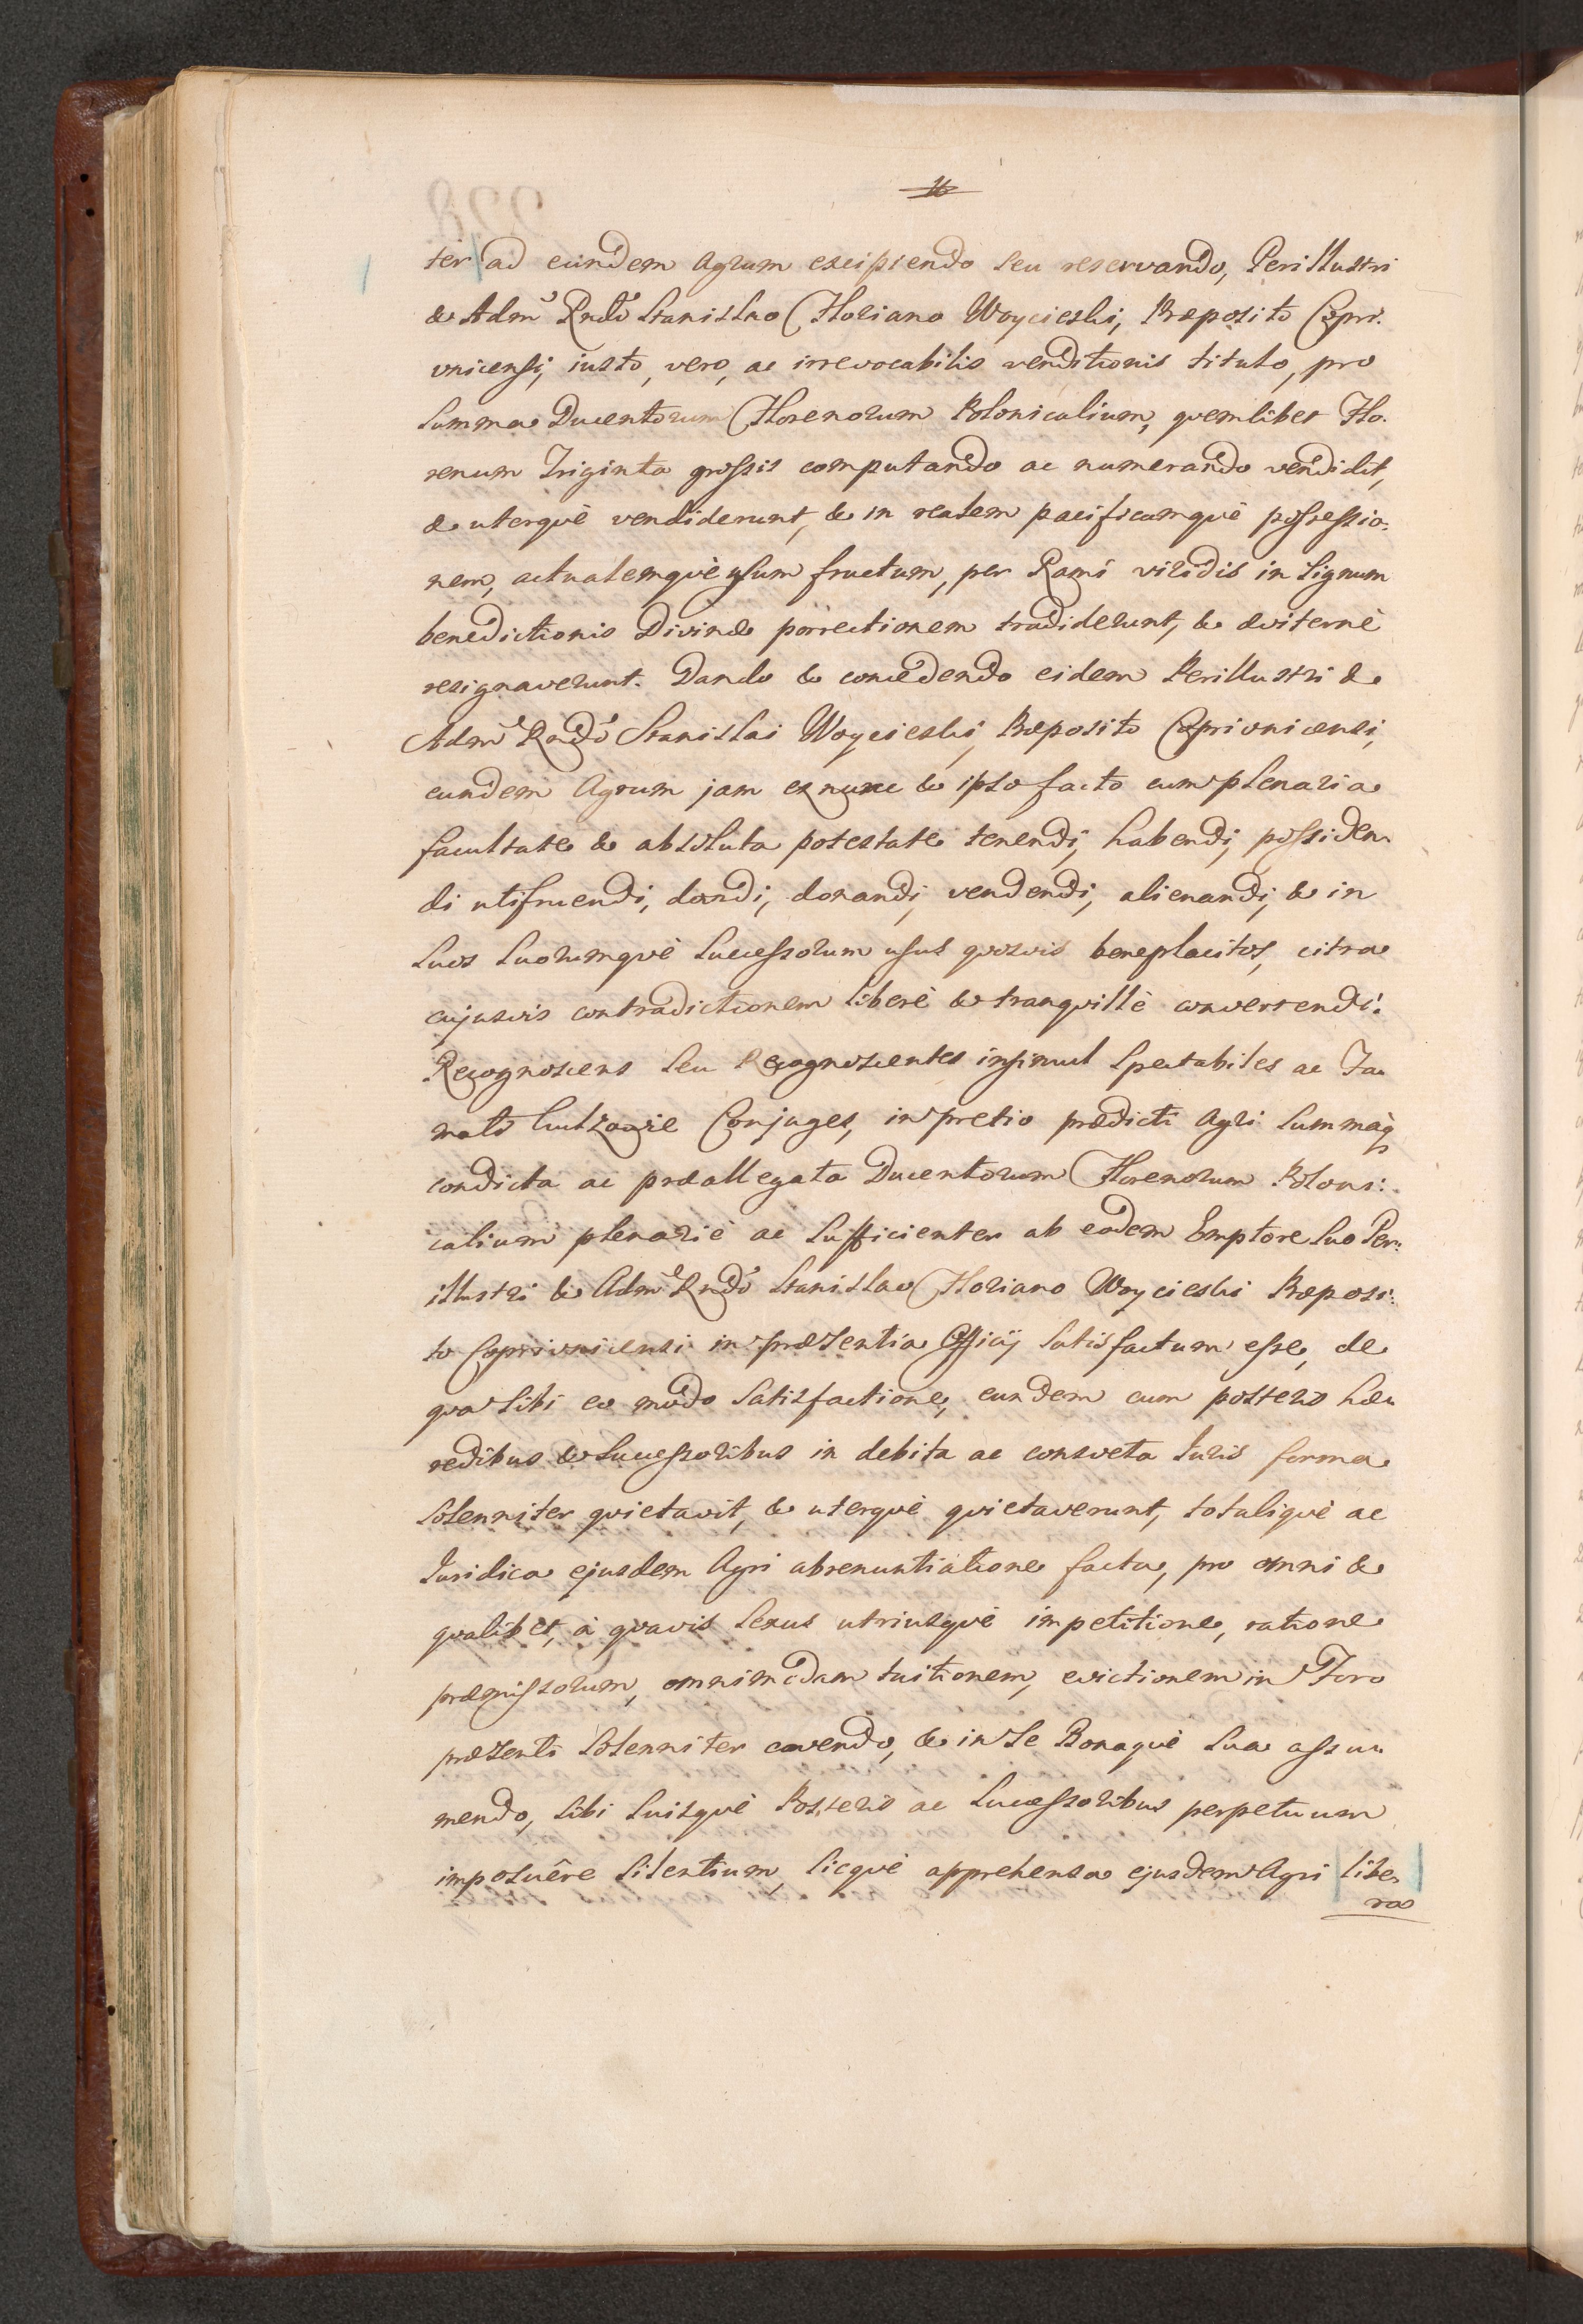 16
ter ad eundem Agrum excipiendo seu reservando, Perillustri
& Adm Rndo Stanislao Floriano Woycieski, Præposito Copri:
vnicensi, iusto, vero, ac irrevocabilis venditionis titulo, pro
Summa Ducentorum Florenorum Polonicalium, quemlibet Flo-
renum Triginta grossis computando ac numerando vendidit,
& uterquè vendiderunt, & in realem pacificamquè possessio-
nem, actualemquè usum fructum, per Rami viridis in Signum
benedictionis Divinæ porrectionem tradiderunt, & æviternè
resignaverunt. Dando & concedendo eidem Perillustri &
Adm Rndo Stanislai Woycieski, Præposito Coprivnicensi,
eundem Agrum jam ex nunc & ipso facto cum plenaria
facultate & absoluta potestate tenendi, habendi, possiden-
di utifruendi, dandi, donandi, vendendi, alienandi, & in
Suos Suorumquè Successorum usus quosvis beneplacitos, citra
cujusvis contradictionem liberè & tranquillè convertendi.
Recognoscens seu Recognoscentes insimul Spectabiles ac Fa-
mati Conjuges, in pretio prædicti Agri Summaq
condicta ac præallegata Ducentorum Florenorum Poloni:
calium plenariè ac Sufficienter ab eodem Emptore Suo Per:
illustri & Adm Rndo Stanislao Floriano Woycieski Præposi:
to Coprivnicensi in præsentia Officij Satisfactum esse, de
qua Sibi eo modo Satisfactione, eundem cum posteris hæ-
redibus & Successoribus in debita ac consveta Iuris forma
Solenniter quietavit, & uterquè quietaverunt, totaliquè ac
Iuridica ejusdem Agri abrenuntiatione facta, pro omni &
qualibet, à quavis Sexus utriusquè impetitione, ratione
præmissorum, omnimodam tuitionem, evictionem in Foro
præsenti Solenniter cavendo, & in Se Bonaquè Sua assu-
mendo, Sibi Suisquè Posteris ac Successoribus perpetuum
imposuêre Silentium, Sicquè apprehensa ejusdem Agri libe-
ra